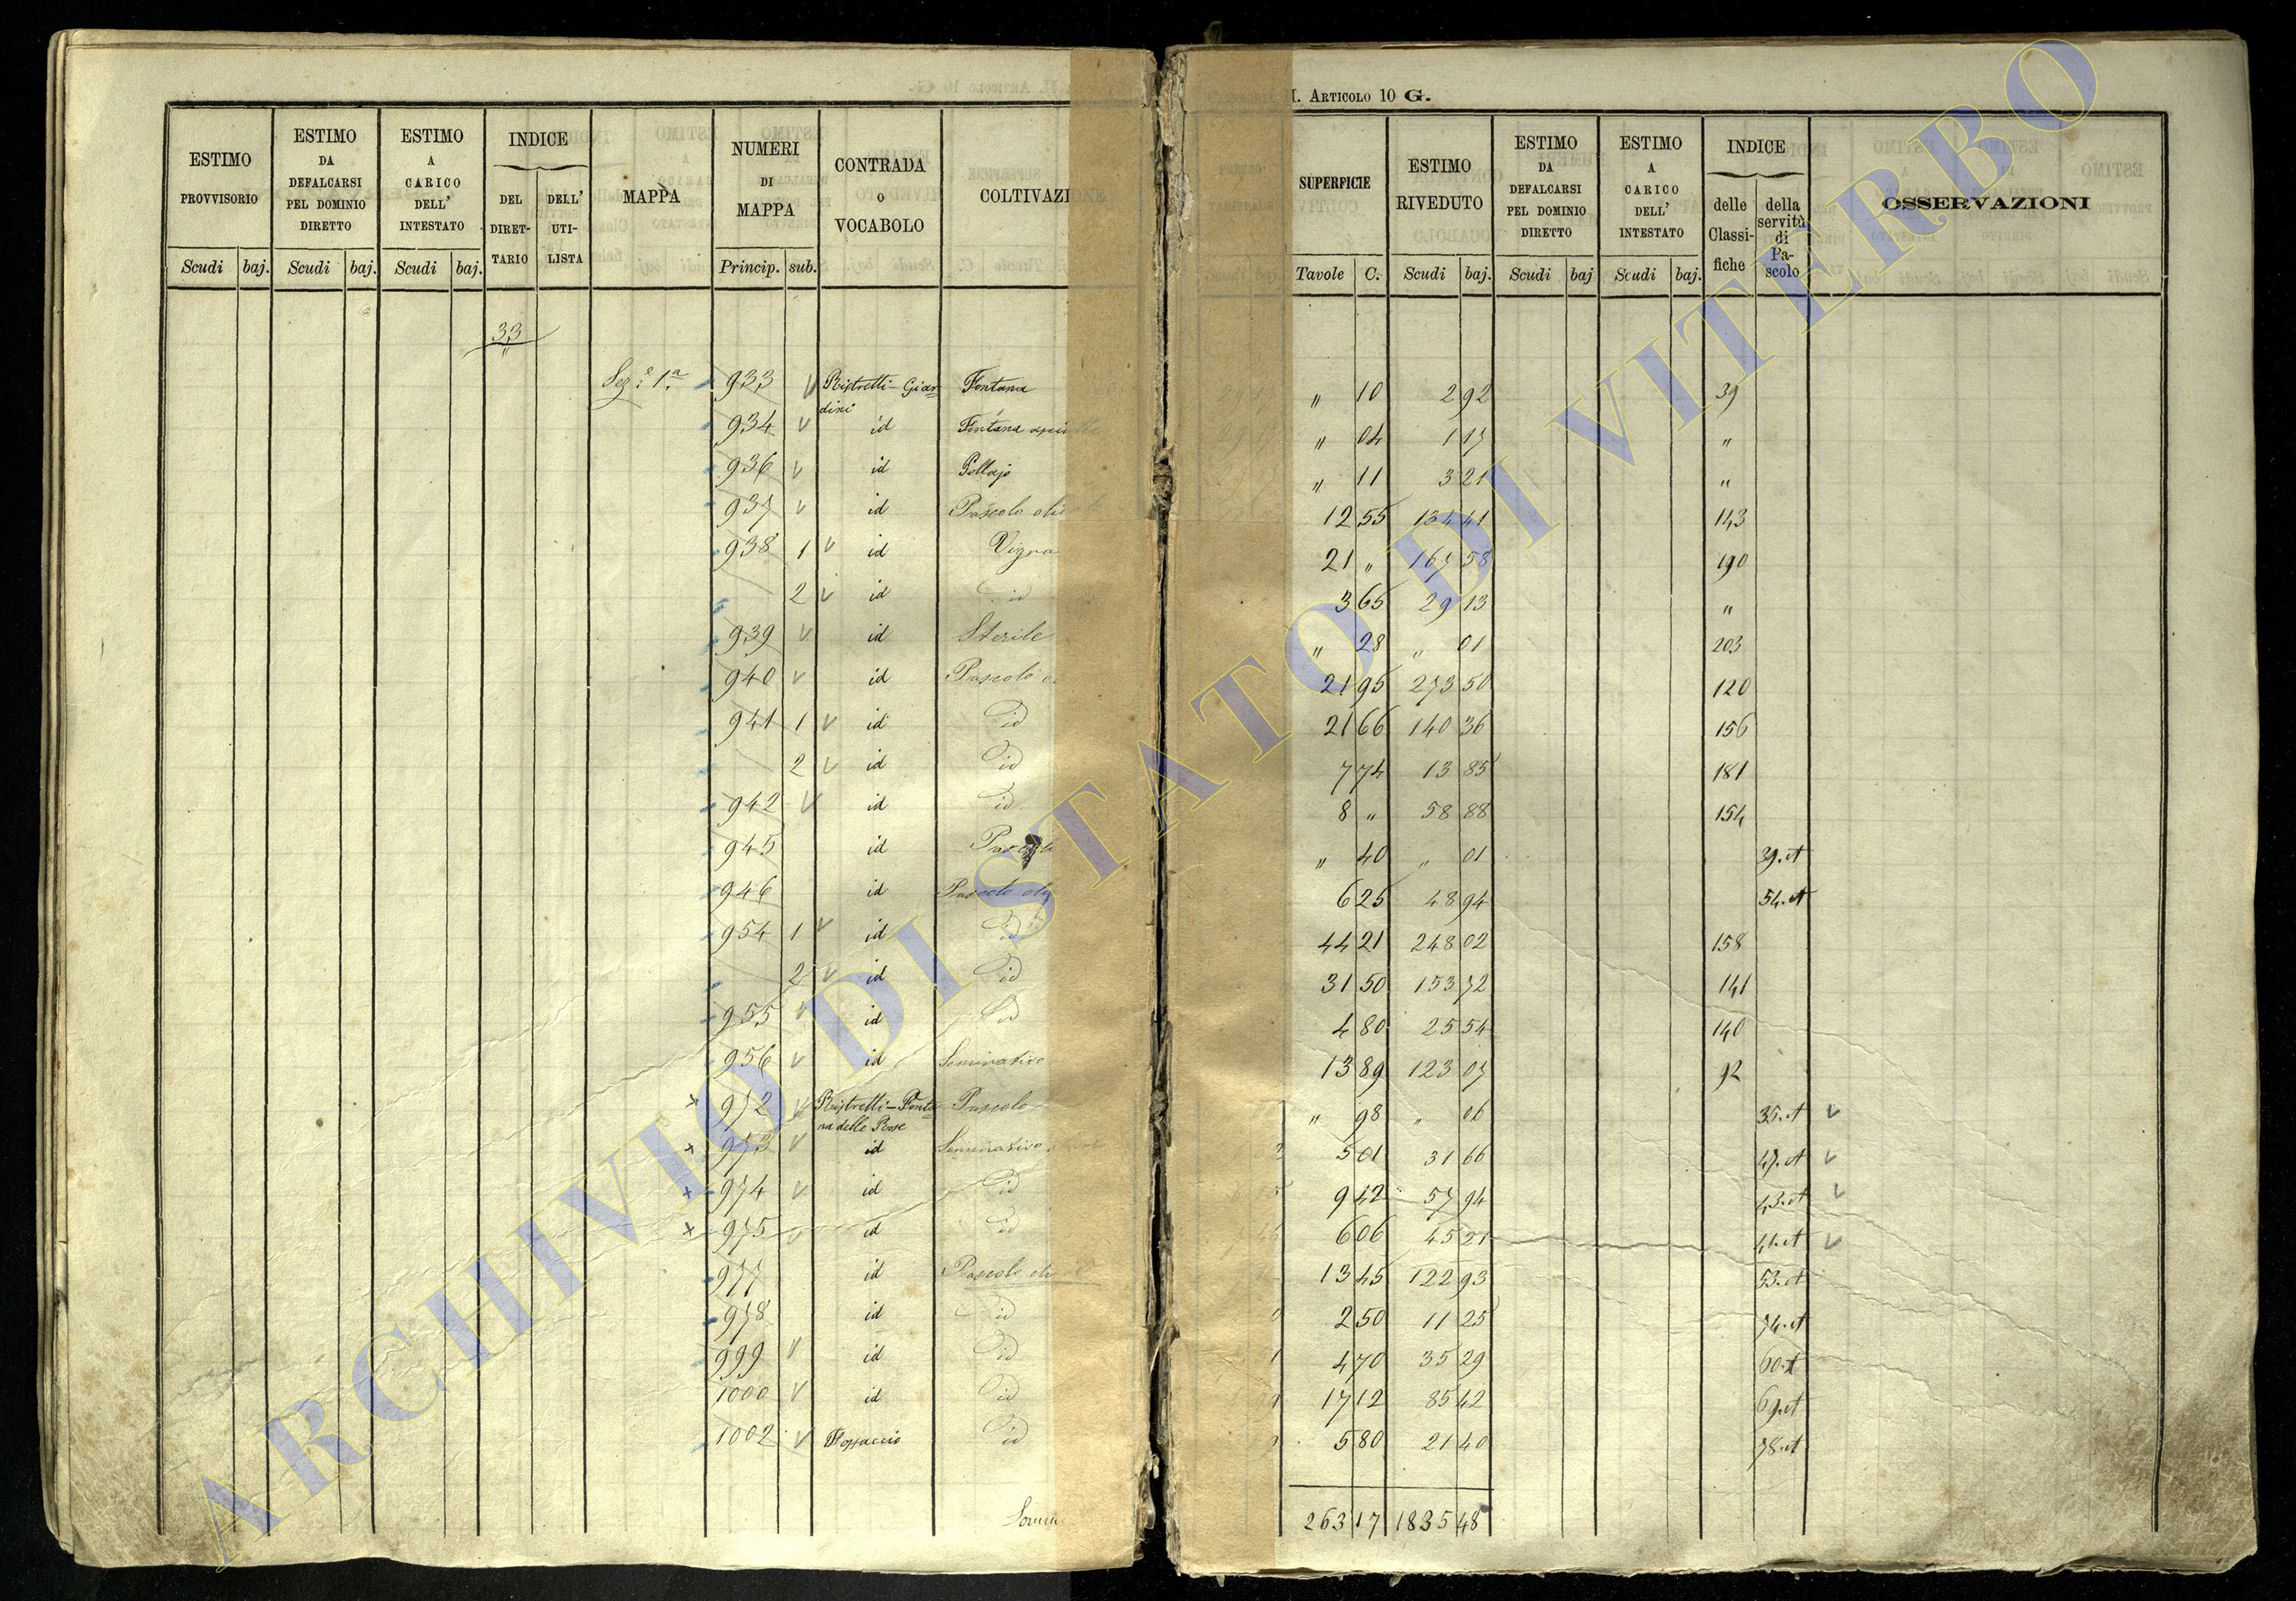 I. ARTICOLO 10 G.
ESTIMO PROVVISORIO
ESTIMO DA DEFALCARSI PEL DOMINIO DIRETTO
ESTIMO A CARICO DELL' INTESTATO
INDICE
DEL DIRET-TARIO
DELL' UTI-LISTA
MAPPA
NUMERI DI MAPPA
CONTRADA O VOCABOLO
COLTIVAZI
SUPERFICIE
ESTIMO RIVEDUTO
ESTIMO DA DEFALCARSI PEL DOMINIO DIRETTO
ESTIMO A CARICO DELL' INTESTATO
INDICE
delle Classi-fiche
della servitù di Pa-scolo
OSSERVAZIONI
Scudi baj. Scudi baj. Scudi baj. Princip. sub. Tavole C. Scudi baj. Scudi baj Scudi baj.
33
"
Sez.e 1a 933 Ristretti-Giar- Fontana " 10 2 92 39
dini
934 id Fontana " 04 1 17 "
936 id Pollajo " 11 3 21 "
937 id Pascolo 12 55 134 41 143
938 1 id Vigna 21 " 167 58 190
2 id id 3 65 29 13 "
939 id Sterile " 28 " 01 203
940 id Pascolo 21 95 273 50 120
941 1 id id 21 66 140 36 156
2 id id 7 74 13 85 181
942 id id 8 " 58 88 154
945 id Pascolo " 40 " 01 39.A
946 id Pascolo 6 25 48 94 54.A
954 1 id id 44 21 248 02 158
2 id id 31 50 153 72 141
955 id id 4 80 25 54 140
956 id Seminativo 13 89 123 07 92
× 972 Ristretti-Fonta- Pascolo " 98 " 06 35.A
na delle Rose
× 973 id Seminativo 5 01 31 66 47.A
× 974 id id 9 42 57 94 43.A
× 975 id id 6 06 45 21 41.A
977 id Pascolo 13 45 122 93 53.A
978 id id 2 50 11 25 74.A
999 id id 4 70 35 29 60.A
1000 id id 17 12 85 42 69.A
1002 Fossaccio id 5 80 21 40 78.A
263 17 1835 48
ARCHIVIO DI STATO DI VITERBO